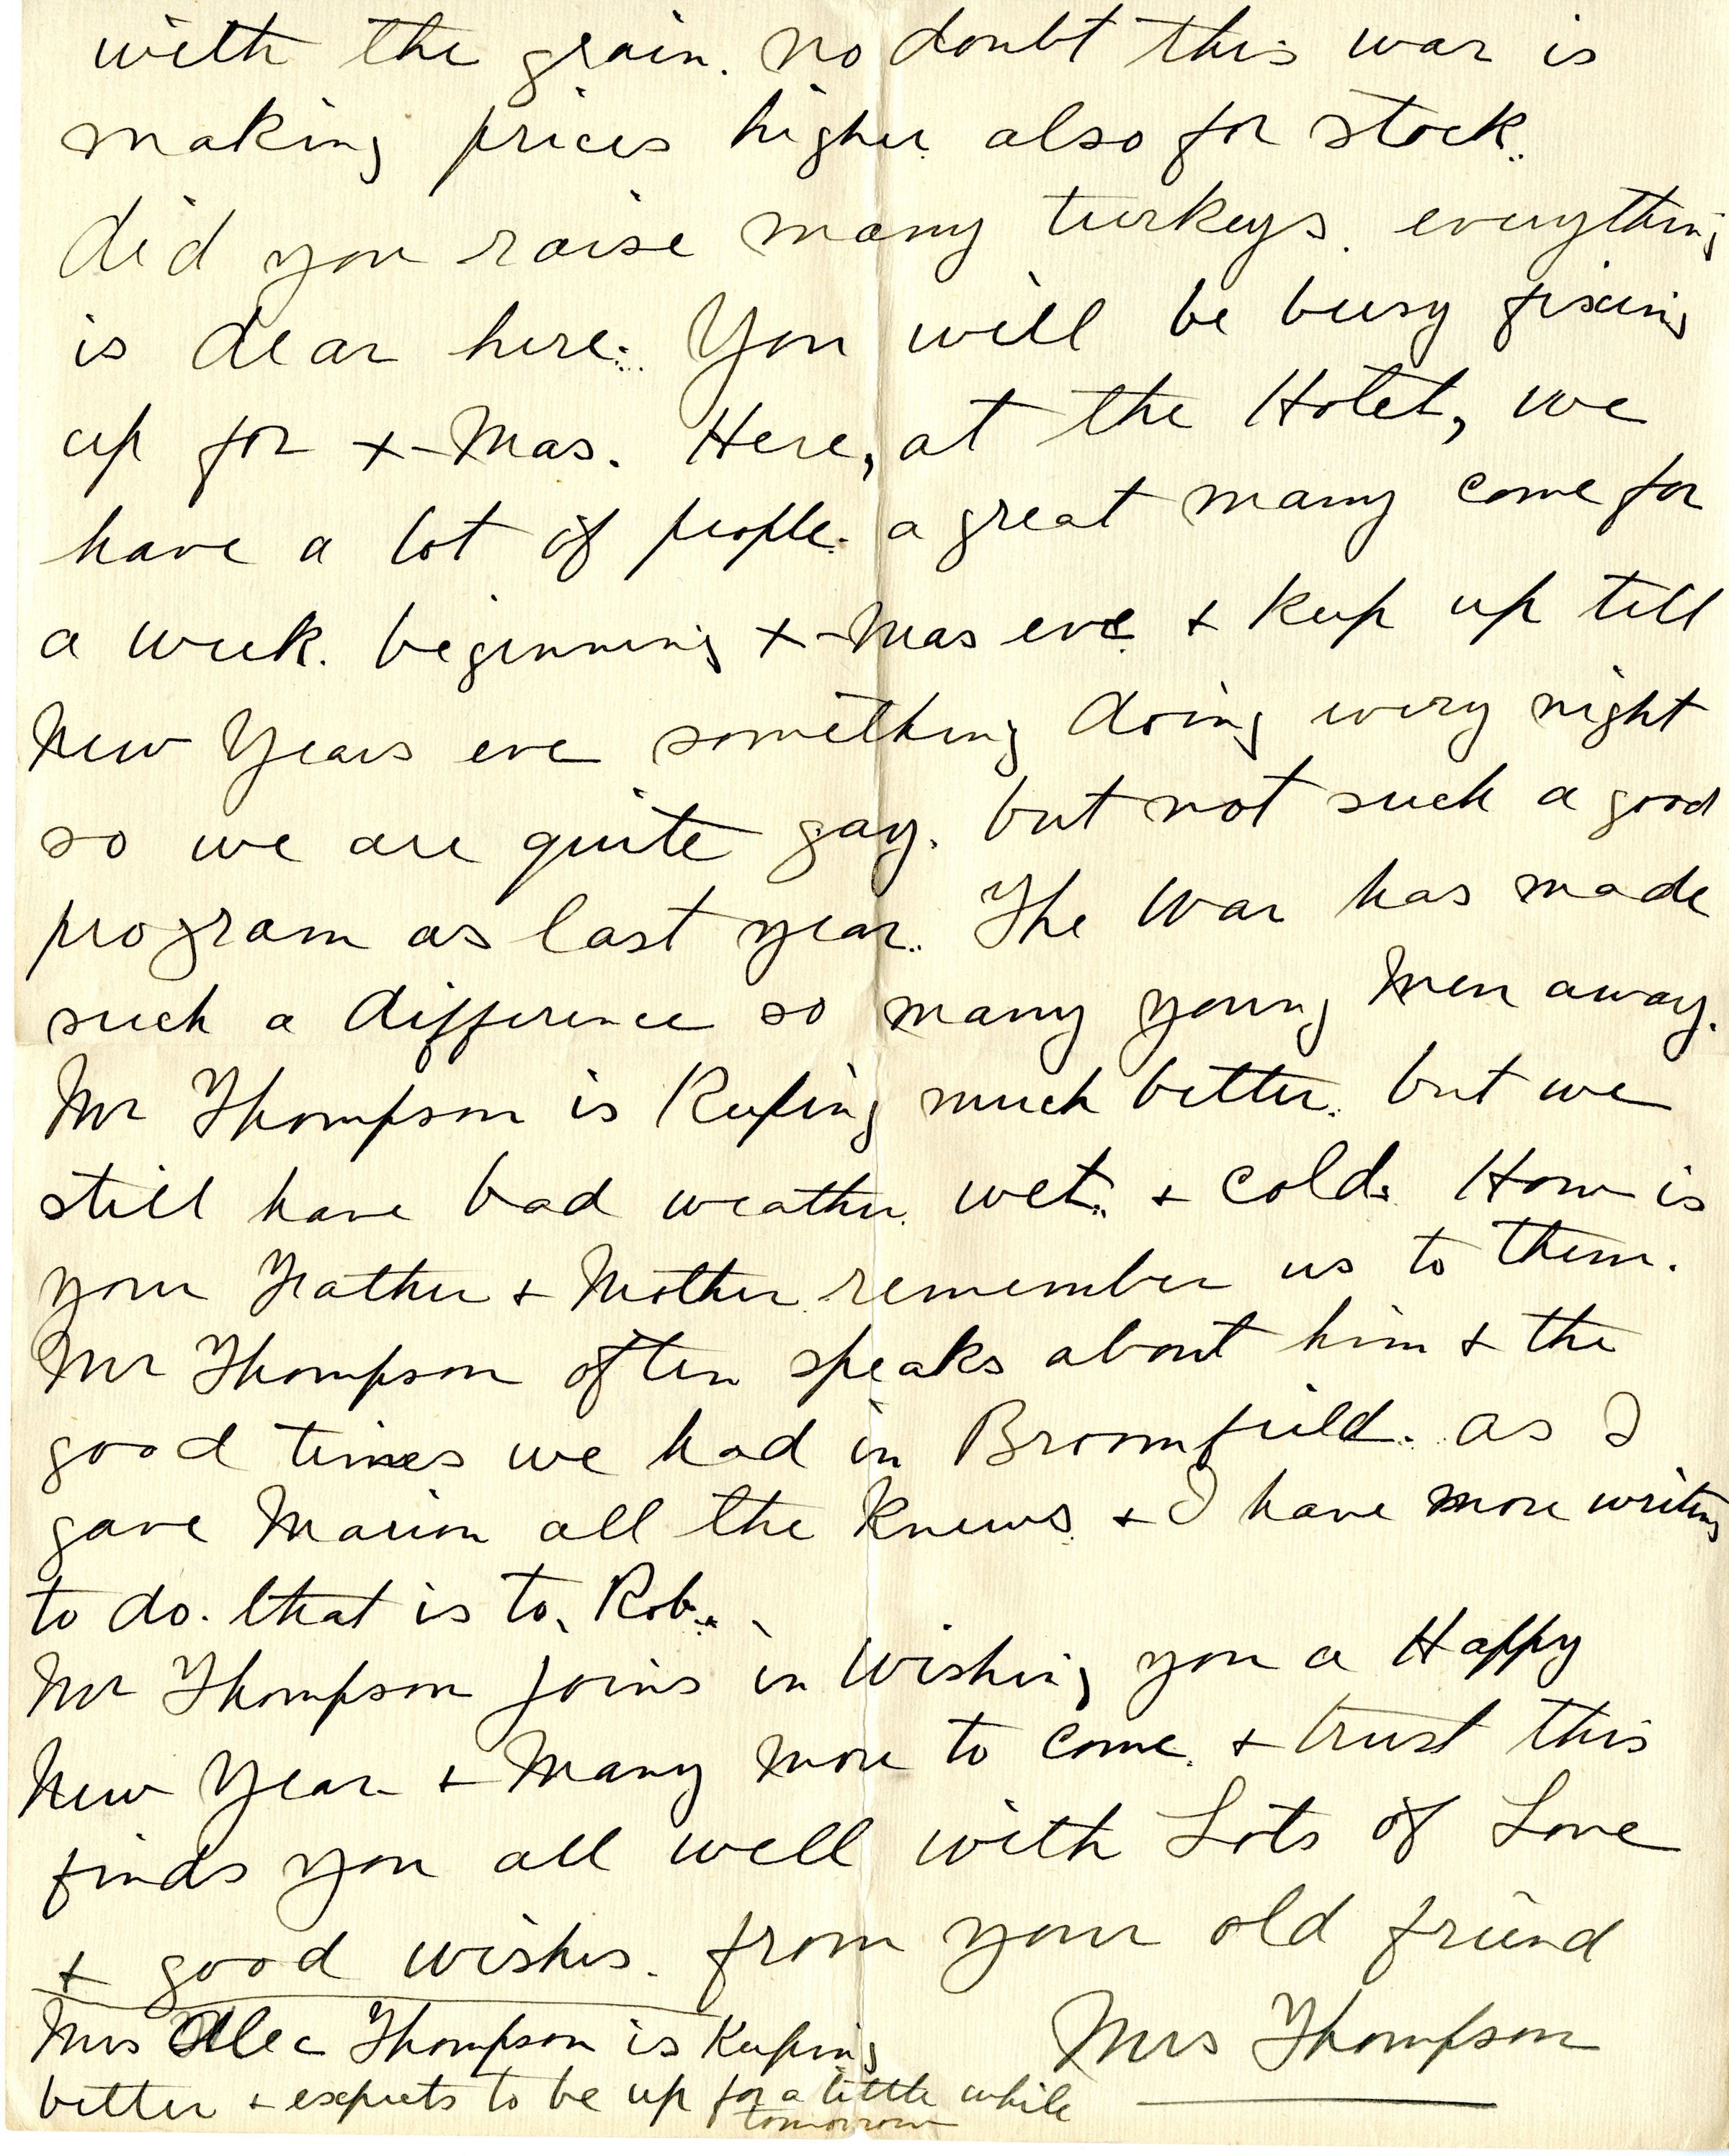 with the grain. no doubt this war is
making prices higher. also for stock.
did you raise many turkeys. everything
is dear here. You will be busy fixing
up for x-Mas. Here, at the Hotel, we
have a lot of people. a great many come for
a week. beginning x-Mas eve. + keep up till
New Years eve something doing every night
so we are quite gay. but not such a good
program as last year. The War has made
such a difference so many young Men away.
Mr Thompson is Keeping much better. but we
still have bad weather. wet. + cold. How is
your Father + Mother. remember us to them.
Mr Thompson often speaks about him + the
good times we had in Broomfield. as I
gave Marion all the Knews. + I have more writing
to do. that is to, Rob.
Mr Thompson joins in Wishing you a Happy
New Year + Many More to come. + trust this
finds you all well with Lots of Love
+ good wishes. from your old friend
Mrs Thompson
Mrs Alec Thompson is Keeping
better + expects to be up for a little while
tomorrow